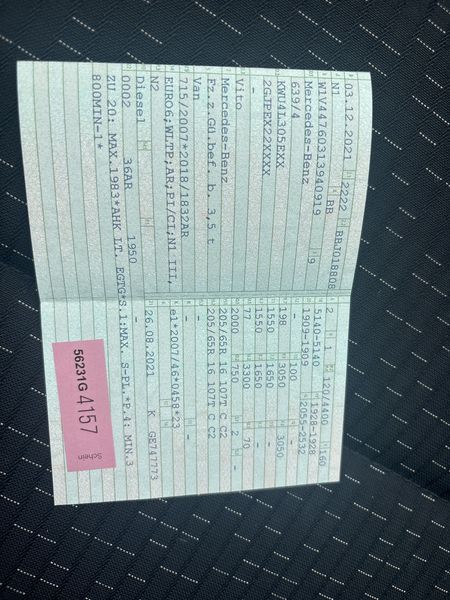 03.12.2021 2222 BBJ018808
N1 BB
W1V44760313940919 9
Mercedes-Benz
639/4
KWU4L305EXX
2GJPEX22XXXX
-
Vito
Mercedes-Benz
Fz.z.Gü.bef. b. 3,5 t
Van
715/2007*2018/1832AR
EURO6;WLTP;AR;PI/CI;N1 III,
N2
Diesel
0002 36AR 1950 -
ZU 20: MAX.1983*AHK LT. EGTG*S.1:MAX. S-PL.*P.4: MIN.3
800MIN-1*
2 1 120/4400 160
5140-5140 1928-1928
1909-1909 2055-2532
- 100 -
198 3050 3050
1550 1650 -
1550 1650 -
77 3300 70
2000 750 2 -
205/65R 16 107T C C2
205/65R 16 107T C C2
- -
e1*2007/46*0458*23
26.08.2021 K GE747773
56231G4157
Schein